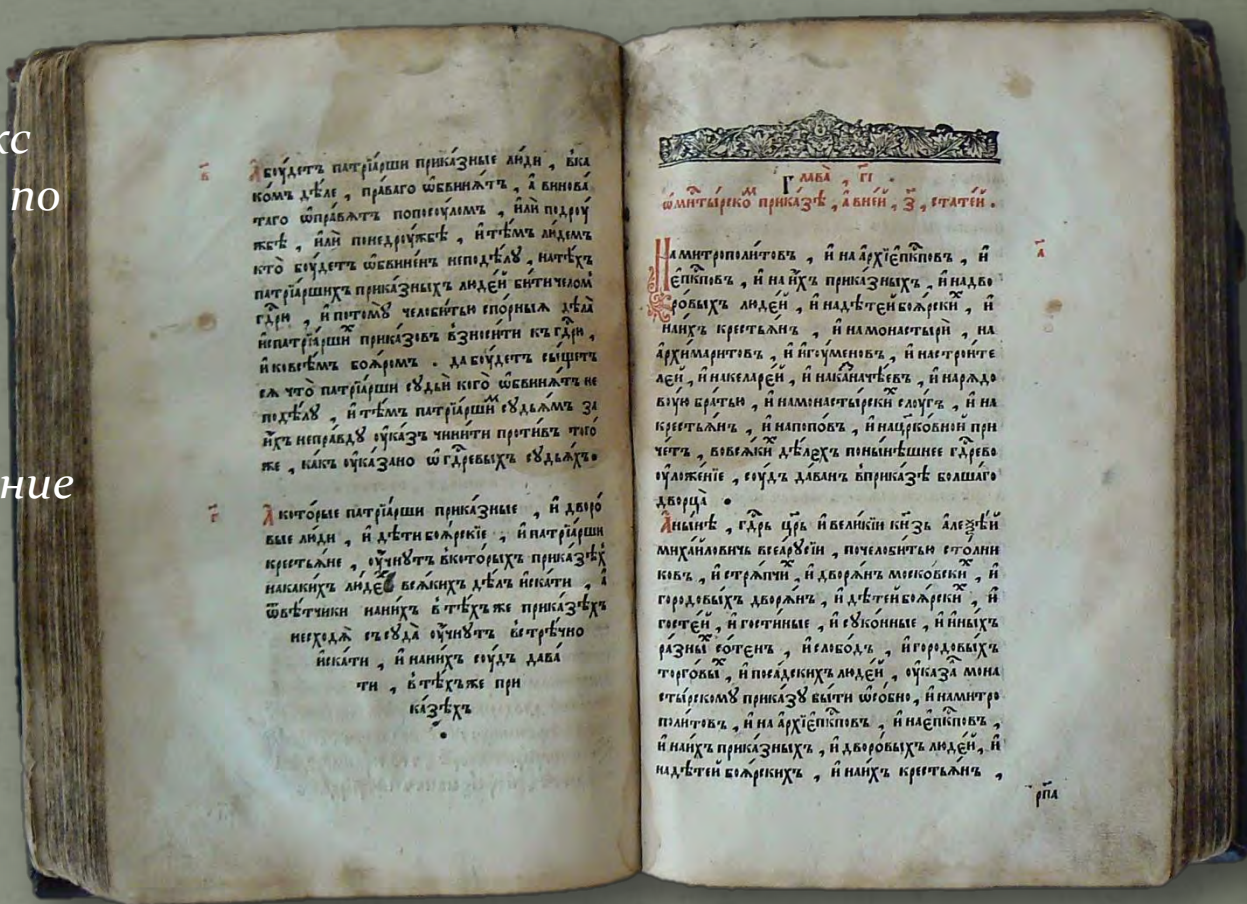 кс
по
ние
в҃
А боу́детъ патрїа́рши прика́зные лю́ди , вка
ко́мъ дѣ́ле , пра́ваго ѡ҆бвиня́тъ , а винова́
таго ѡ҆пра́вятъ попосу́ломъ , и҆ли́ подроу́
жбѣ , и҆ли́ понедроу́жбѣ , и҆тѣ́мъ лю́демъ
кто̀ боу́детъ ѡ҆бвине́нъ неподѣ́лу , натѣ́хъ
патрїа́ршихъ прика́зныхъ люде́й би́ти чело́м
гдⷭ҇рю , и҆ потому̀ челоби́тью спо́рныя дѣла̀
и҆спатрїа́рши прика́зовъ взноси́ти къ гдⷭ҇рю ,
и҆ ковсѣ́мъ боя́ромъ . да боу́детъ сы́щет
ся что̀ патрїа́рши судьи̑ кого̀ ѡ҆бвиня́тъ не
подѣ́лу , и҆ тѣ́мъ патрїа́ршим судья́мъ за
и҆́хъ непра́вду оу҆ка́зъ чини́ти проти́въ того̀
же , ка́къ оу҆ка́зано ѡ҆ гдⷭ҇ревыхъ судья́хъ .
г҃
А кото́рые патрїа́рши прика́зные , и҆ дворо́
вые лю́ди , и҆ дѣ́ти боя́рскїе , и҆ патрїа́рши
крестья́не , оу҆чну́тъ вкото́рыхъ прика́зѣх
накаки́хъ люде́ вся́кихъ дѣ́лъ и҆ска́ти , а҆
ѿвѣ́тчики нани́хъ в тѣ́хъже прика́зѣхъ
несходя̀ съсуда̀ оу҆чну́тъ встрѣ́чно
и҆ска́ти , и҆ нани́хъ соу́дъ дава́
ти , в тѣ́хъже при
ка́зѣхъ
Глава̀ , г҃і .
ѡ҆ мнⷭ҇тырско прика́зѣ , а вне́й , з҃ , стате́й .
а҃
На митрополи́товъ , и҆ на а҆рхїепⷭ҇кповъ , и҆
е҆пⷭ҇кповъ , и҆ на и҆́хъ прика́зныхъ , и҆ надво
ро́выхъ люде́й , и҆ надѣте́й боя́рски , и҆
наи́хъ крестья́нъ , и҆ намонастыри̑ , на
а҆рхимари́товъ , и҆ и҆гоу́меновъ , и҆ настрои́те
ле́й , и҆ накеларе́й , и҆ наказначѣ́евъ , и҆ нарядо
воую бра́тью , и҆ намонасты́рски слоу́гъ , и҆ на
крестья́нъ , и҆ напопо́въ , и҆ нацр҃ко́вной при
че́тъ , вовся́ки дѣ́лехъ поны́нѣшнее гдⷭ҇рево
оу҆ложе́нїе , соу́дъ да́ванъ вприка́зѣ болша́го
дворца̀ .
А ны́нѣ , гдⷭ҇рь цр҃ь и҆ вели́кїи кн҃зь алеѯѣ́й
миха́йловичь всеа̀ роусі́и , почелоби́тью сто́лни
ковъ , и҆ стря́пчи , и҆ дворя́нъ моско́вски , и҆
городовы́хъ дворя́нъ , и҆ дѣте́й боя́рски , и҆
госте́й , и҆ гости́ные , и҆ суко́нные , и҆ и҆ны́хъ
ра́зны со́тенъ , и҆ слобо́дъ , и҆ городовы́хъ
торго́вы , и҆ поса́дскихъ люде́й , оу҆каза̀ мона
сты́рскому прика́зу бы́ти ѡ҆со́бно , и҆ намитро
поли́товъ , и҆ на а҆рхїепⷭ҇кповъ , и҆ наепⷭ҇кповъ ,
и҆ наи́хъ прика́зныхъ , и҆ дворо́выхъ люде́й , и҆
надѣте́й боя́рскихъ , и҆ наи́хъ крестья́нъ ,
рп҃а